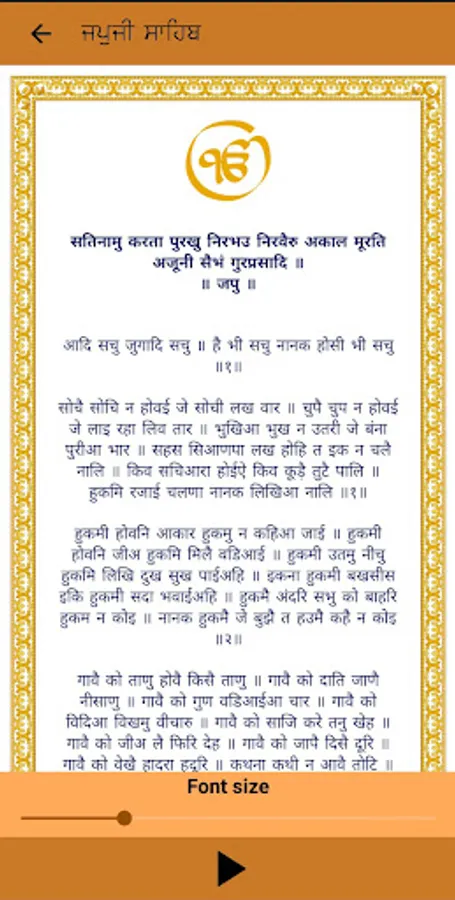 ਜਪੁਜੀ ਸਾਹਿਬ
ੴ
सतिनामु करता पुरखु निरभउ निरवैरु अकाल मूरति
अजूनी सैभं गुरप्रसादि ॥
॥ जपु ॥
आदि सचु जुगादि सचु ॥ है भी सचु नानक होसी भी सचु
॥१॥
सोचै सोचि न होवई जे सोची लख वार ॥ चुपै चुप न होवई
जे लाइ रहा लिव तार ॥ भुखिआ भुख न उतरी जे बंना
पुरीआ भार ॥ सहस सिआणपा लख होहि त इक न चलै
नालि ॥ किव सचिआरा होईऐ किव कूड़ै तुटै पालि ॥
हुकमि रजाई चलणा नानक लिखिआ नालि ॥१॥
हुकमी होवनि आकार हुकमु न कहिआ जाई ॥ हुकमी
होवनि जीअ हुकमि मिलै वडिआई ॥ हुकमी उतमु नीचु
हुकमि लिखि दुख सुख पाईअहि ॥ इकना हुकमी बखसीस
इकि हुकमी सदा भवाईअहि ॥ हुकमै अंदरि सभु को बाहरि
हुकम न कोइ ॥ नानक हुकमै जे बुझै त हउमै कहै न कोइ
॥२॥
गावै को ताणु होवै किसै ताणु ॥ गावै को दाति जाणै
नीसाणु ॥ गावै को गुण वडिआईआ चार ॥ गावै को
विदिआ विखमु वीचारु ॥ गावै को साजि करे तनु खेह ॥
गावै को जीअ लै फिरि देह ॥ गावै को जापै दिसै दूरि ॥
गावै को वेखै हादरा हदूरि ॥ कथना कथी न आवै तोटि ॥
Font size